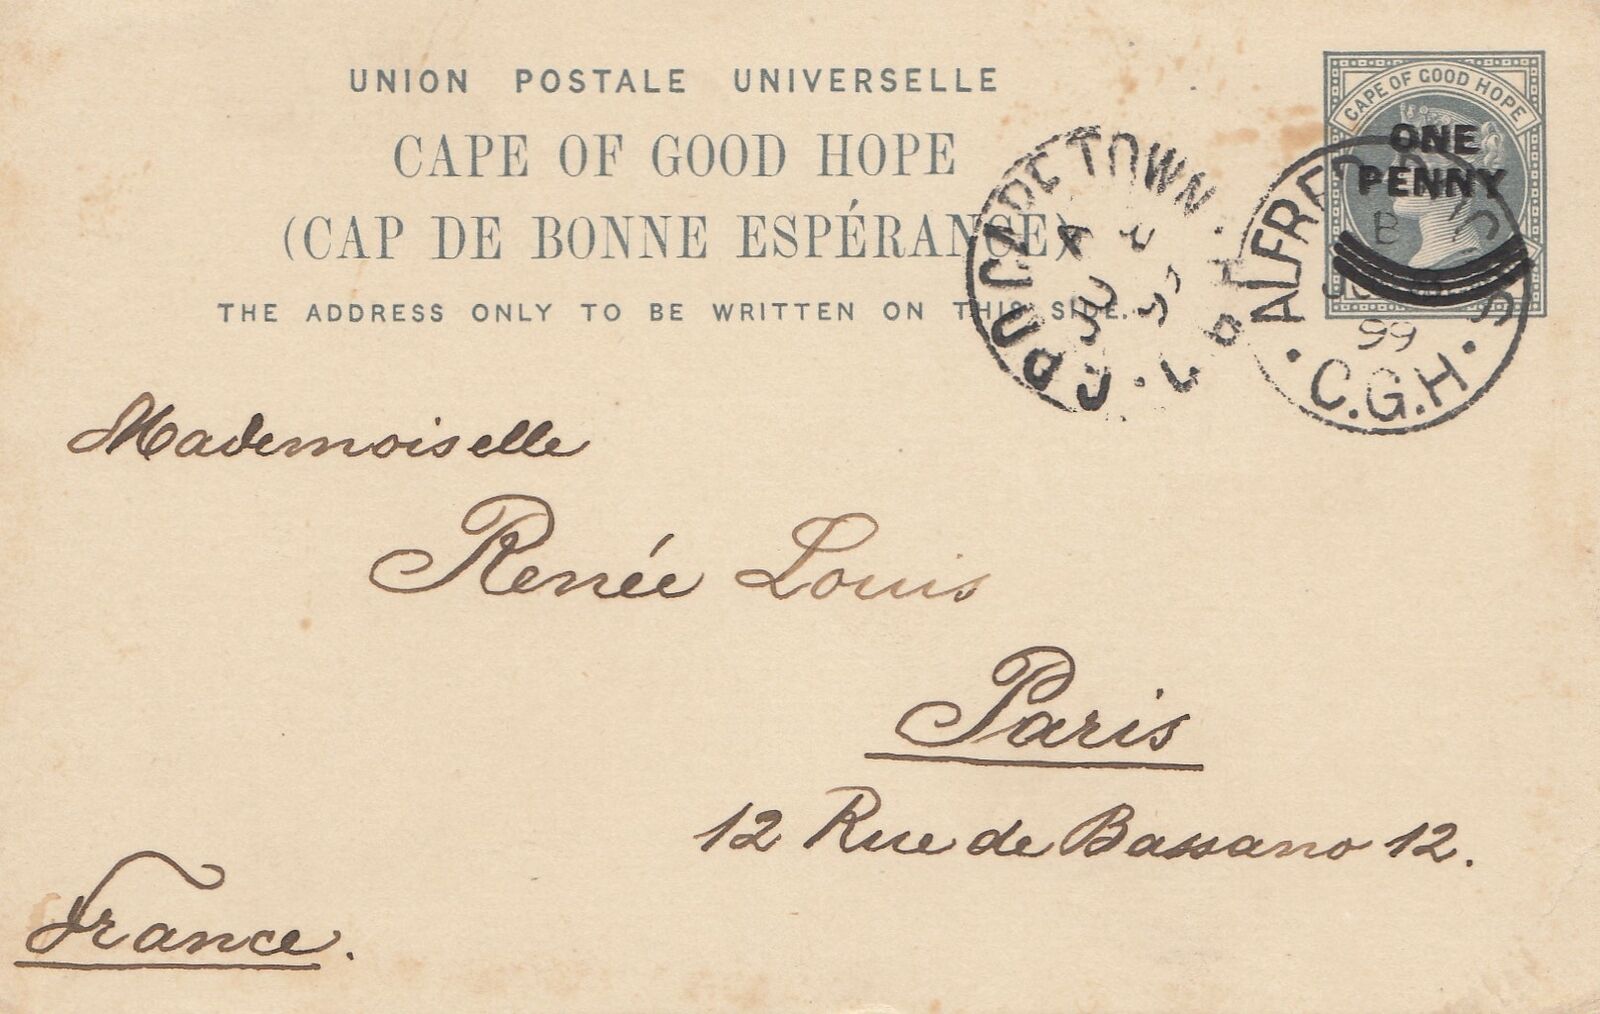 UNION POSTALE UNIVERSELLE
CAPE OF GOOD HOPE
(CAP DE BONNE ESPÉRANCE)
THE ADDRESS ONLY TO BE WRITTEN ON THIS SIDE.
CAPE OF GOOD HOPE
ONE
PENNY
CAPE TOWN
G.P.O.
A
ALFRED
B
99
C.G.H.
Mademoiselle
Renée Louis
Paris
12 Rue de Bassano 12.
France.